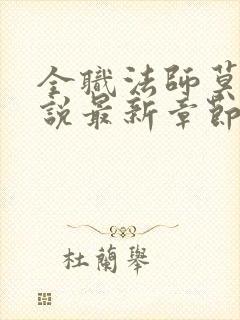 全職法師莫
說最新章節
杜蘭舉